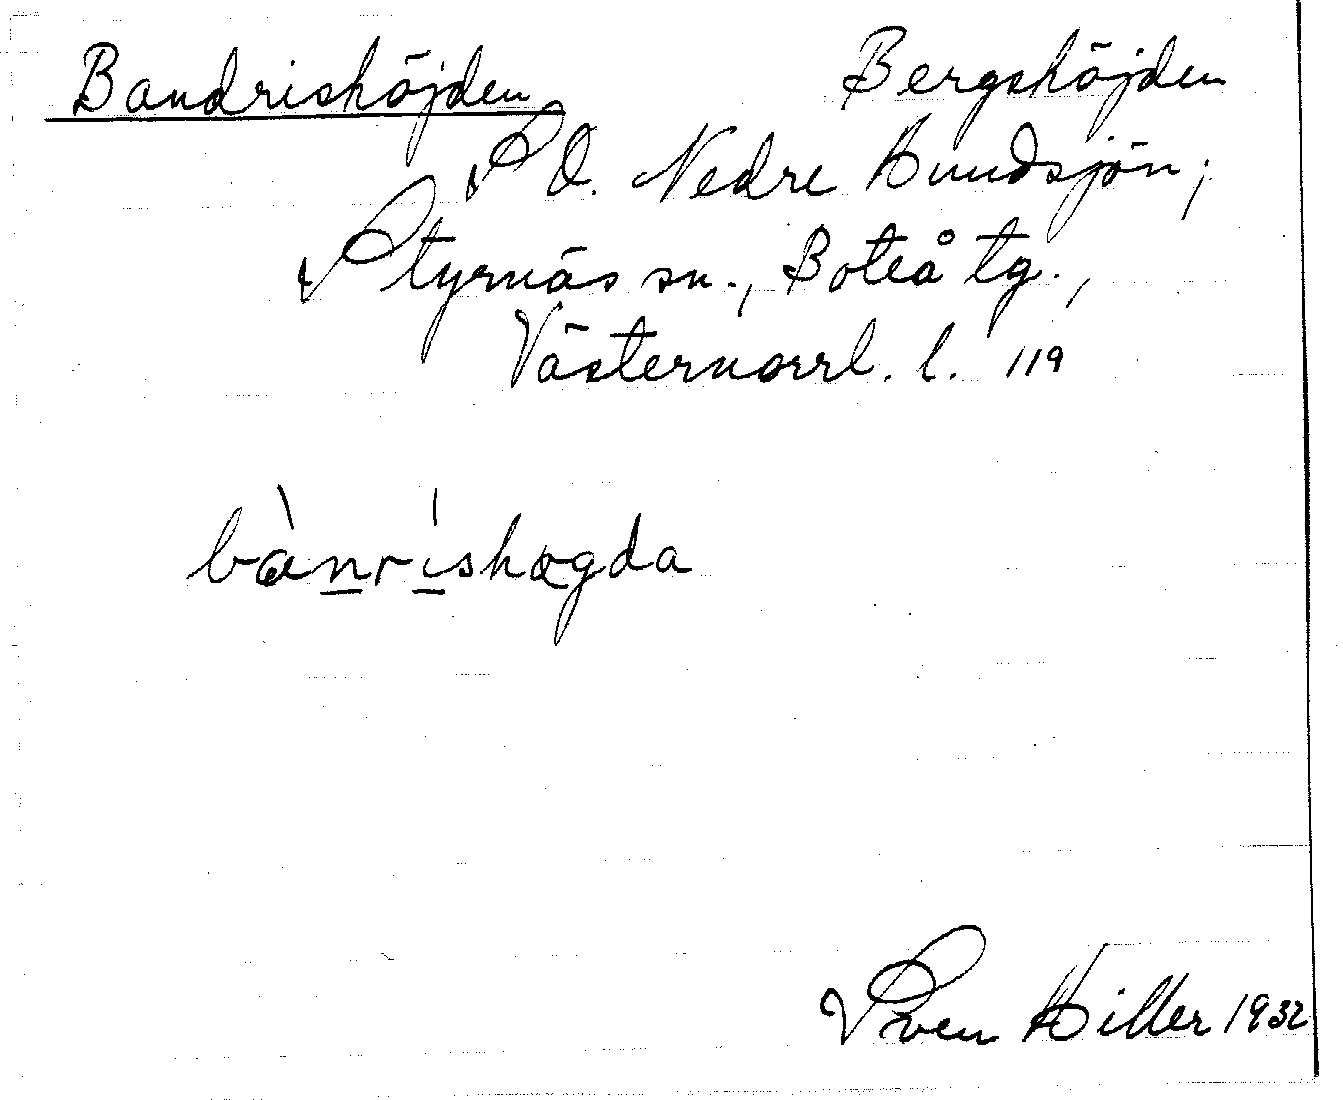 Bandrishöjden Bergshöjden
SO. Nedre Hundsjön;
Styrnäs sn., Boteå tg.,
Västernorrl. l. 119
bànríshøgda
Sven Hiller 1932